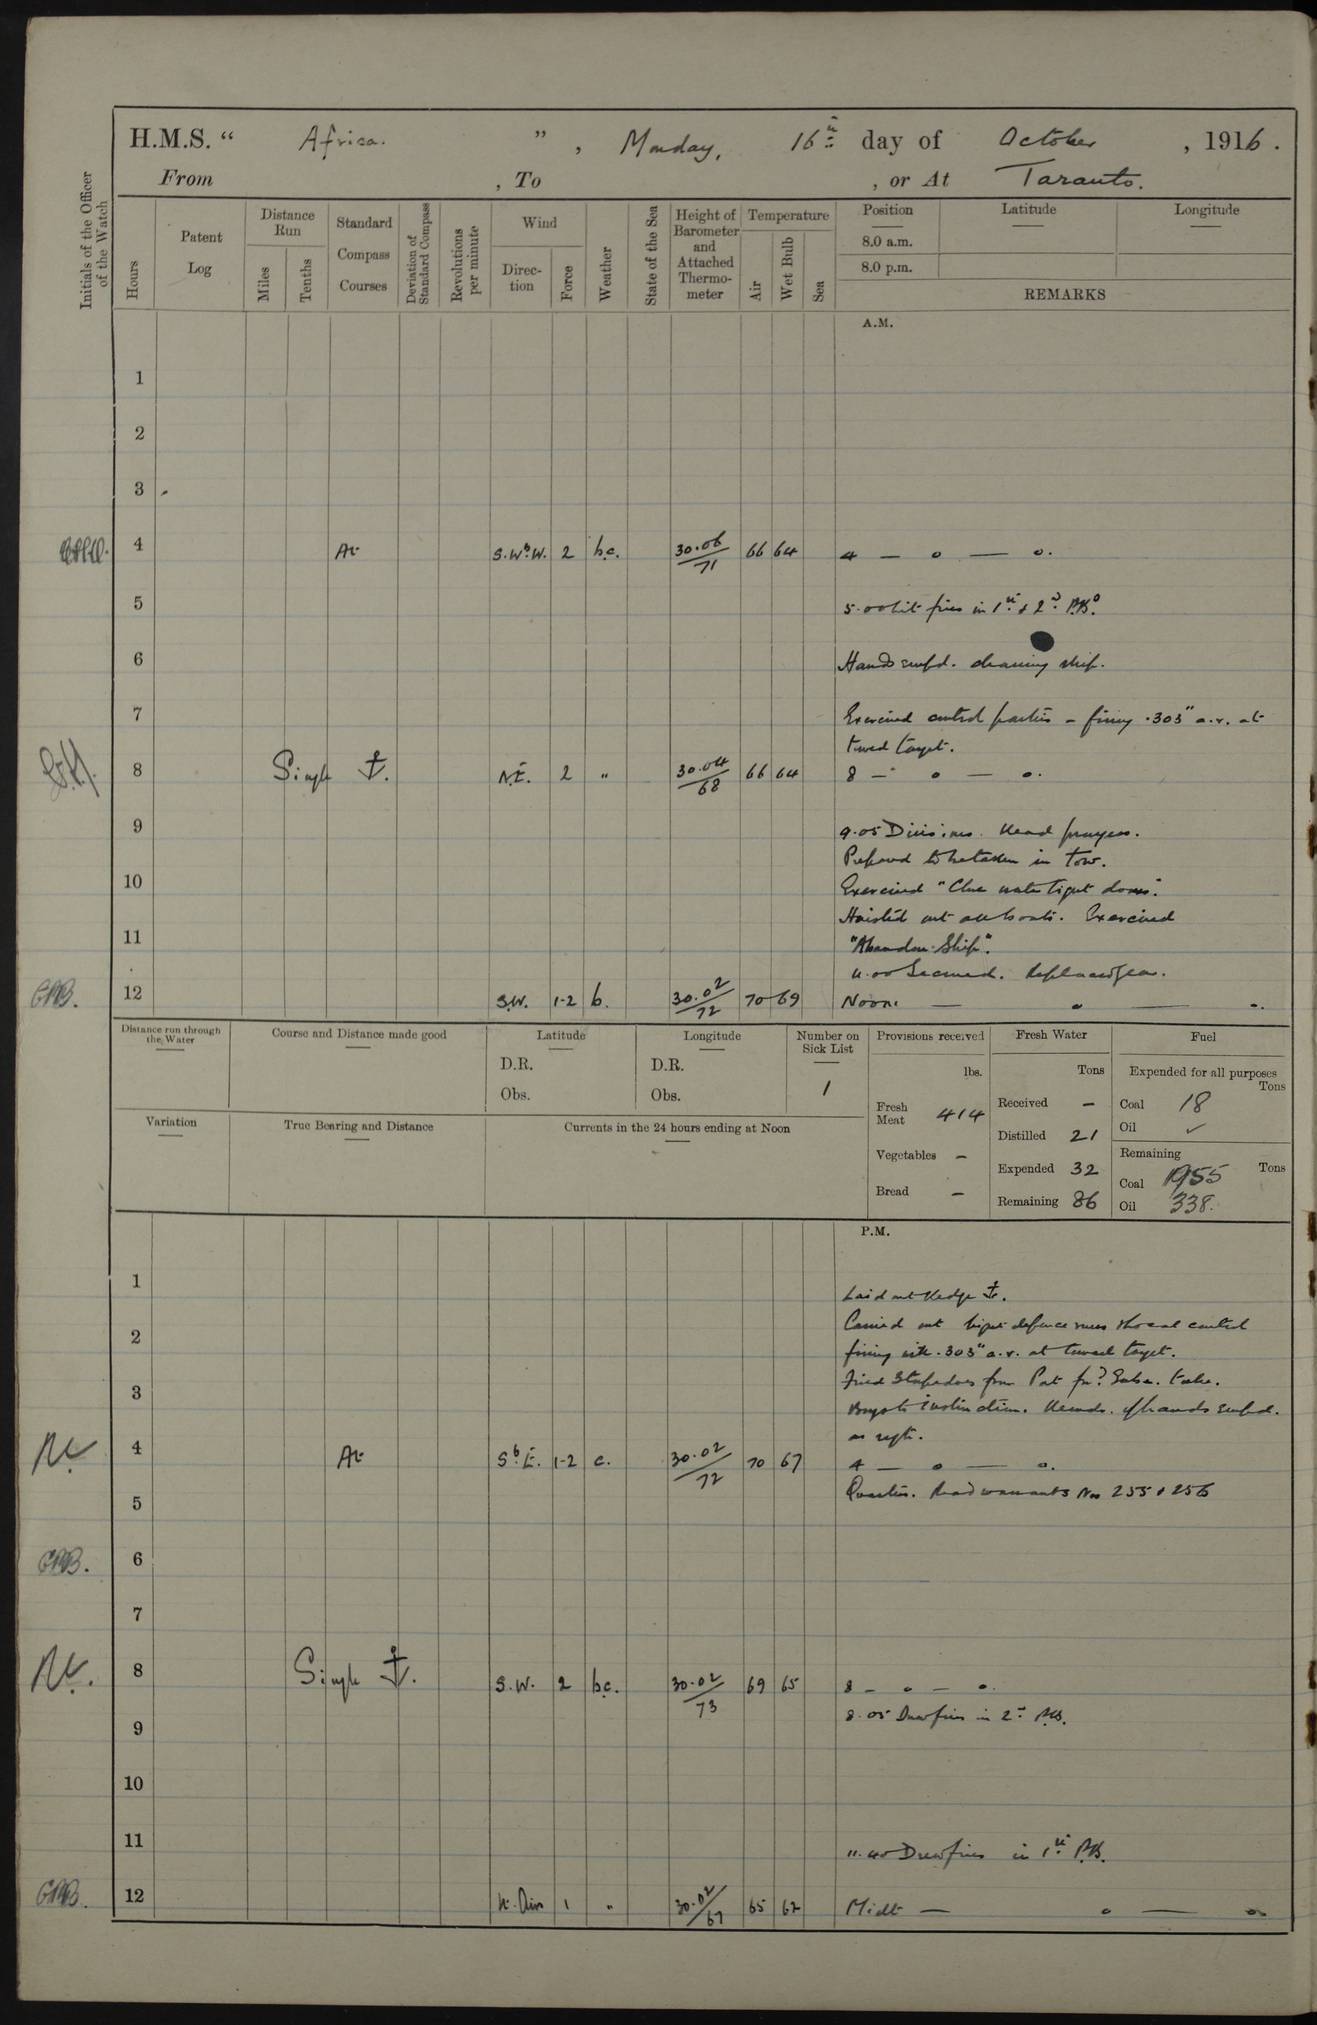 H.M.S. “ Africa. ” , Monday, 16th day of October , 1916.
From , To , or At Taranto.
Initials of the Officer of the Watch
Hours
Patent Log
Distance Run
Miles
Tenths
Standard Compass Courses
Deviation of Standard Compass
Revolutions per minute
Wind
Direc-tion
Force
Weather
State of the Sea
Height of Barometer and Attached Thermo-meter
Temperature
Air
Wet Bulb
Sea
Position
Latitude
Longitude
8.0 a.m.
8.0 p.m.
REMARKS
A.M.
1
2
3
4 At S.WbW. 2 b.c. 30.06/71 66 64 4 — o — o.
5 5.00 Lit fires in 1st & 2nd B.Rs.
6 Hands empd. cleaning ship.
7 Exercised control parties – firing .303" a.r. at
towed target.
8 Single ⚓. N.E. 2 " 30.04/68 66 64 8 — o — o.
9 9.05 Divisions. Read prayers.
Prepared to be taken in tow.
10 Exercised "Close water tight doors".
Hoisted out all boats. Exercised
11 "Abandon Ship".
11.00 Secured. Replaced gear.
GRB. 12 S.W. 1-2 b. 30.02/72 70 69 Noon. — o — o.
Distance run through the Water
Course and Distance made good
Latitude
D.R.
Obs.
Longitude
D.R.
Obs.
Number on Sick List
1
Provisions received
lbs.
Fresh Meat 414
Vegetables –
Bread –
Fresh Water
Tons
Received –
Distilled 21
Expended 32
Remaining 86
Fuel
Expended for all purposes
Tons
Coal 18
Oil ✓
Remaining
Tons
Coal 1955
Oil 338.
Variation
True Bearing and Distance
Currents in the 24 hours ending at Noon
P.M.
1 Laid out Kedge ⚓.
2 Carried out night defence runs & local control
firing with .303" a.r. at towed target.
3 Fired 3 torpedoes from Port
Boys to instruction. Remdr. of hands empd.
as reqte.
4 At SbE. 1-2 c. 30.02/72 70 67 4 — o — o.
Quarters. Read warrants Nos 255 & 256
5
GRB. 6
7
8 Single ⚓. S.W. 2 b.c. 30.02/73 69 65 8 — o — o.
8.05 Drew fires in 2nd B.R.
9
10
11 11.40 Drew fires in 1st B.R.
GRB. 12 Lt. Airs 1 " 30.02/67 65 62 Midt — o — o